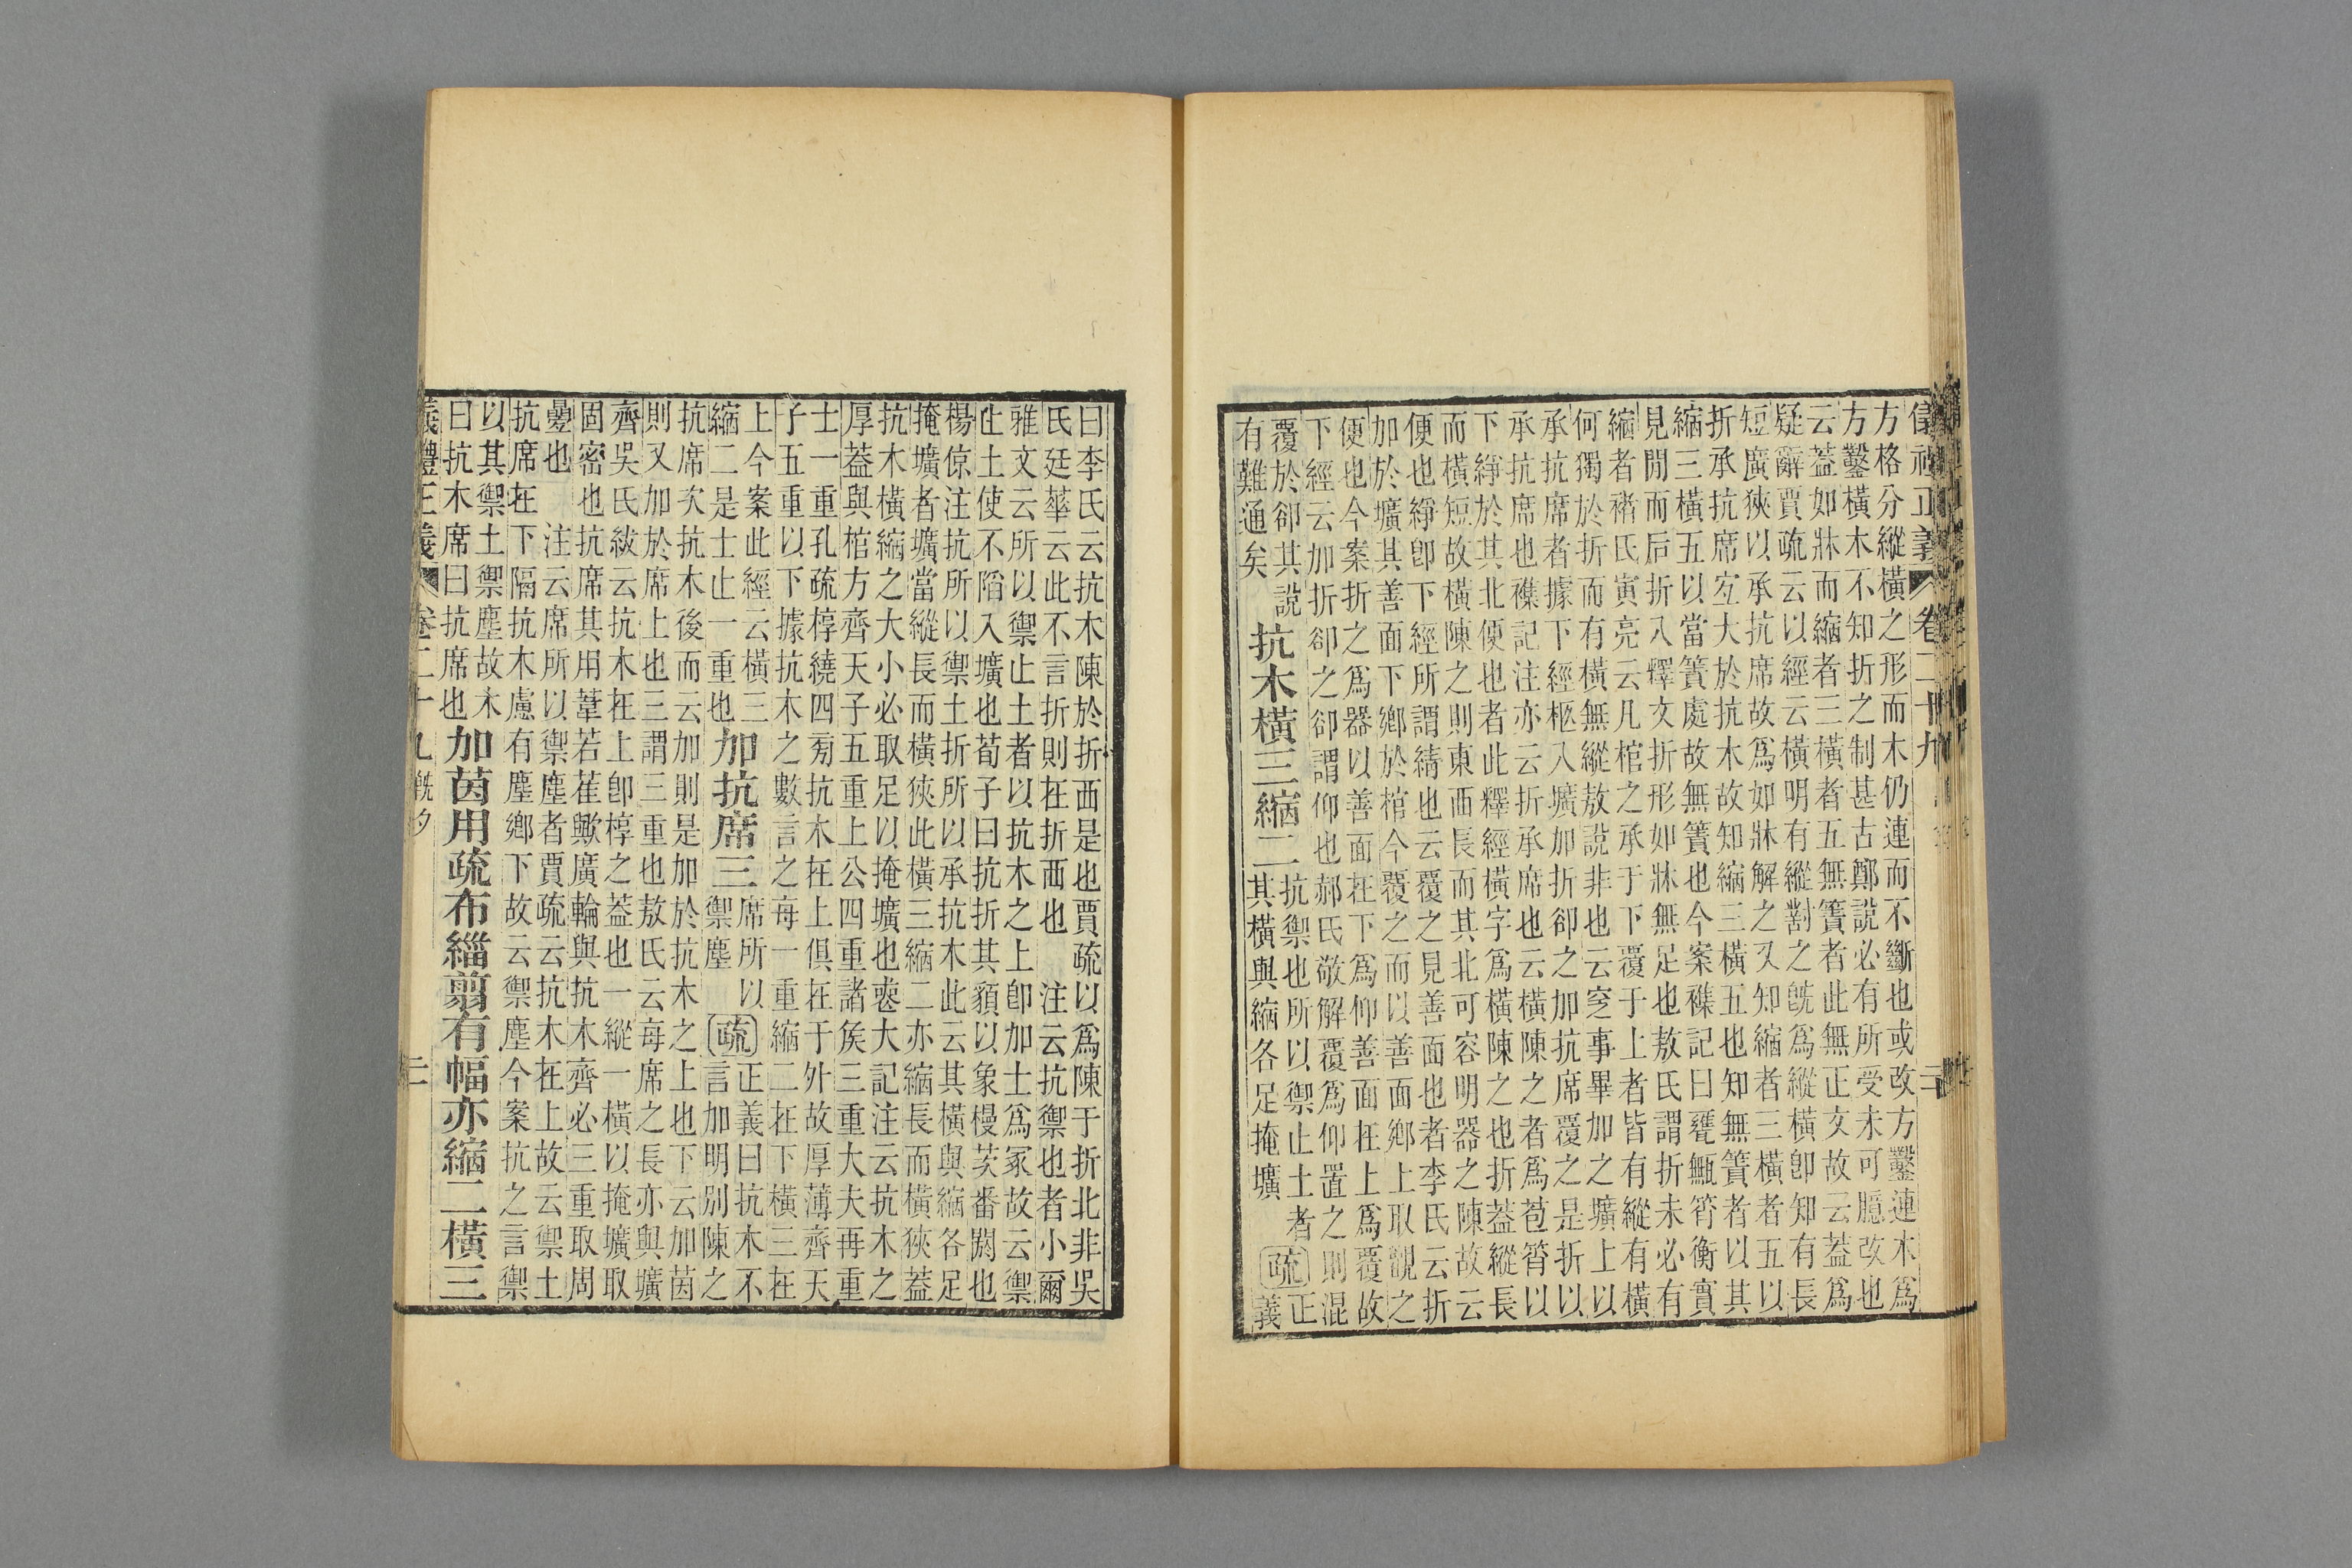 儀禮正義 卷二十九
方格分縱橫之形而木仍連而不斷也或改方鑿連木爲
方鑿橫木不知折之制甚古鄭說必有所受未可臆改也
云蓋如牀而縮者三橫者五無簀者此無正文故云蓋爲
疑辭賈疏云以經云橫明有縱對之旣爲縱橫卽知有長
短廣狹以承抗席故爲如牀解之又知縮者三橫者五以
折承抗席宜大於抗木故知縮三橫五也知無簀者以其
縮三橫五以當簀處故無簀也今案襍記曰甕甒筲衡實
見閒而后折入釋文折形如牀無足也敖氏謂折未必有
縮者褚氏寅亮云凡棺之承于下覆于上者皆有縱有橫
何獨於折而有橫無縱敖說非也云窆事畢加之壙上以
承抗席者據下經柩入壙加折卻之加抗席覆之是折以
承抗席也襍記注亦云折承席也云橫陳之者爲苞筲以
下綪於其北便也者此釋經橫字爲橫陳之也折蓋縱長
而橫短故橫陳之則東西長而其北可容明器之陳故云
便也綪卽下經所謂綪也云覆之見善面也者李氏云折
加於壙其善面下鄉於棺今覆之而以善面鄉上取覩之
便也今案折之爲器以善面在下爲仰善面在上爲覆故
下經云加折卻之卻謂仰也郝氏敬解覆爲仰置之則混
覆於卻其說
有難通矣
抗木橫三縮二
抗禦也所以禦止土者
其橫與縮各足掩壙
疏
正
義
曰李氏云抗木陳於折西是也賈疏以爲陳于折北非吳
氏廷華云此不言折則在折西也 注云抗禦也者小爾
雅文云所以禦止土者以抗木之上卽加土爲冢故云禦
止土使不陷入壙也荀子曰抗折其䫉以象槾茨番閼也
楊倞注抗所以禦土折所以承抗木此云其橫與縮各足
掩壙者壙當縱長而橫狹此橫三縮二亦縮長而橫狹蓋
抗木橫縮之大小必取足以掩壙也喪大記注云抗木之
厚蓋與棺方齊天子五重上公四重諸侯三重大夫再重
士一重孔疏椁繞四旁抗木在上俱在于外故厚薄齊天
子五重以下據抗木之數言之每一重縮二在下橫三在
上今案此經云橫三
縮二是士止一重也
加抗席三
席所以
禦塵
疏
正義曰抗木不
言加明別陳之
抗席次抗木後而云加則是加於抗木之上也下云加茵
則又加於席上也三謂三重也敖氏云每席之長亦與壙
齊吳氏紱云抗木在上卽椁之蓋也一縱一橫以掩壙取
固密也抗席其用葦若萑歟廣輪與抗木齊必三重取周
疊也 注云席所以禦塵者賈疏云抗木在上故云禦土
抗席在下隔抗木慮有塵鄉下故云禦塵今案抗之言禦
以其禦土禦塵故木
曰抗木席曰抗席也
加茵用疏布緇翦有幅亦縮二橫三
儀禮正義 卷二十九 旣夕 二